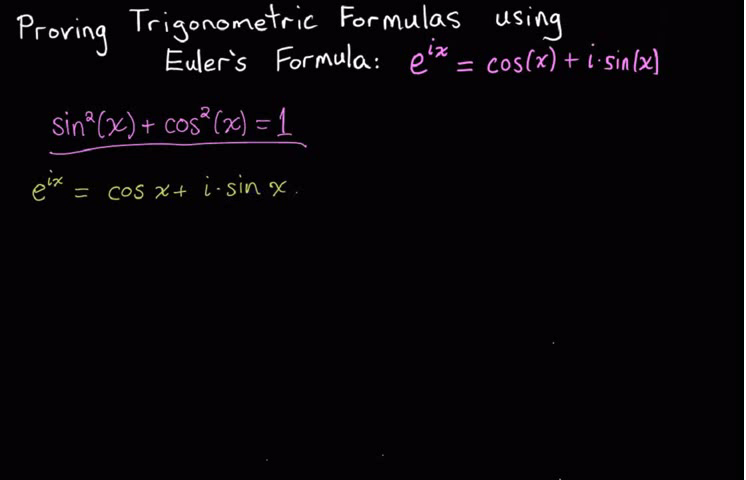 Proving Trigonometric Formulas using
Euler's Formula: e^{ix} = cos(x) + i·sin(x)
sin²(x) + cos²(x) = 1
e^{ix} = cos x + i·sin x.